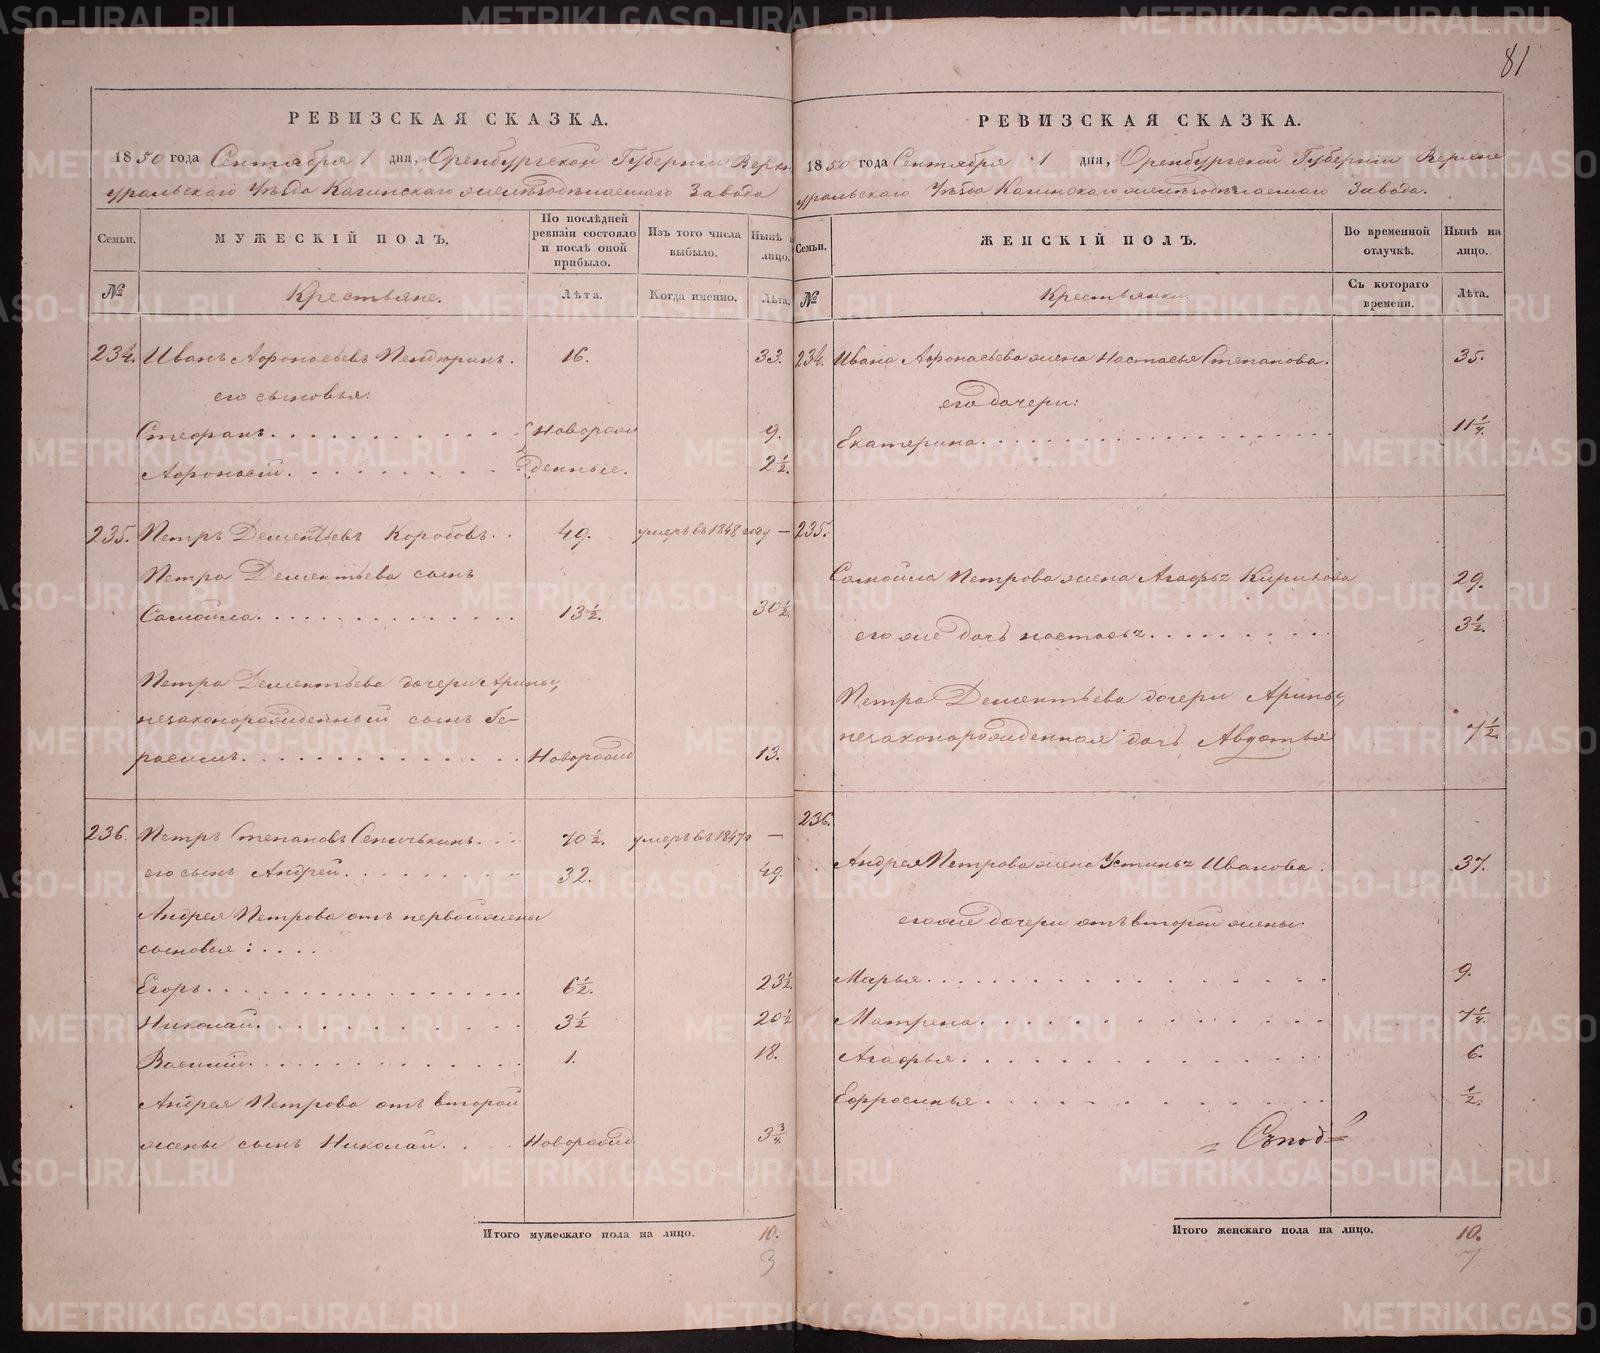 81
РЕВИЗСКАЯ СКАЗКА.
1850 года Сентября 1 дня, Оренбургской Губернiи Верхне
уральскаго Уѣзда Кагинскаго желѣзодѣлаемаго Завода
Семьи.
МУЖЕСКІЙ ПОЛЪ.
По послѣдней ревизіи состояло и послѣ оной прибыло.
Изъ того числа выбыло.
Нынѣ на лицо.
№
Крестьяне.
Лѣта.
Когда именно.
Лѣта.
234. Иванъ Афонасьевъ Пендюринъ. 16. 33.
его сыновья:
Стефанъ. Новорож 9.
Афонасій. денные. 2 1/2.
235. Петръ Дементьевъ Коробовъ. 49. умеръ въ 1848 году —
Петра Дементьева сынъ
Самойла. 13 1/2. 30 1/2.
Петра Дементьева дочери Арины,
незаконорожденный сынъ Ге-
расимъ. Новорожд 13.
236. Петръ Степановъ Сеничькинъ. 70 1/2. умеръ въ 1847 г —
его сынъ Андрей. 32. 49.
Андрея Петрова отъ первой жены
сыновья:
Егоръ. 6 1/2. 23 1/2.
Николай. 3 1/2 20 1/2
Василій. 1. 18.
Андрея Петрова отъ второй
жены сынъ Николай. Новорожд 3 3/4.
Итого мужескаго пола на лицо. 10.
3
РЕВИЗСКАЯ СКАЗКА.
1850 года Сентября 1 дня, Оренбургской Губернiи Верхне
уральскаго Уѣзда Кагинскаго желѣзодѣлаемаго Завода.
Семьи.
ЖЕНСКІЙ ПОЛЪ.
Во временной отлучкѣ.
Нынѣ на лицо.
№
Крестьянки.
Съ котораго времени.
Лѣта.
234. Ивана Афонасьева жена Настасья Степанова. 35.
его дочери:
Екатерина. 11 1/4.
235.
Самойла Петрова жена Агафья Кирилова 29.
его же дочь Настасья. 3 1/2.
Петра Дементьева дочери Арины,
незаконорожденная дочь Авдотья 7 1/2.
236.
Андрея Петрова жена Устинья Иванова. 37.
его же дочери отъ второй жены:
Марья. 9.
Матрена. 7 1/4.
Агафья. 6.
Ефросинья. 1/2.
Итого женскаго пола на лицо. 10.
7
METRIKI.GASO-URAL.RU